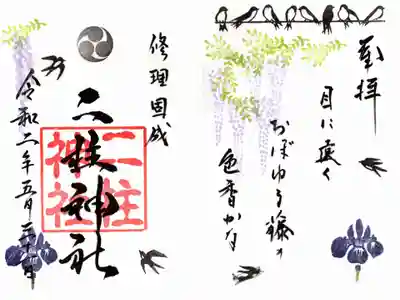 奉拝
目に遠く
おぼゆる藤の
色香かな
修理固成
二柱神社
二柱
神社
令和二年五月